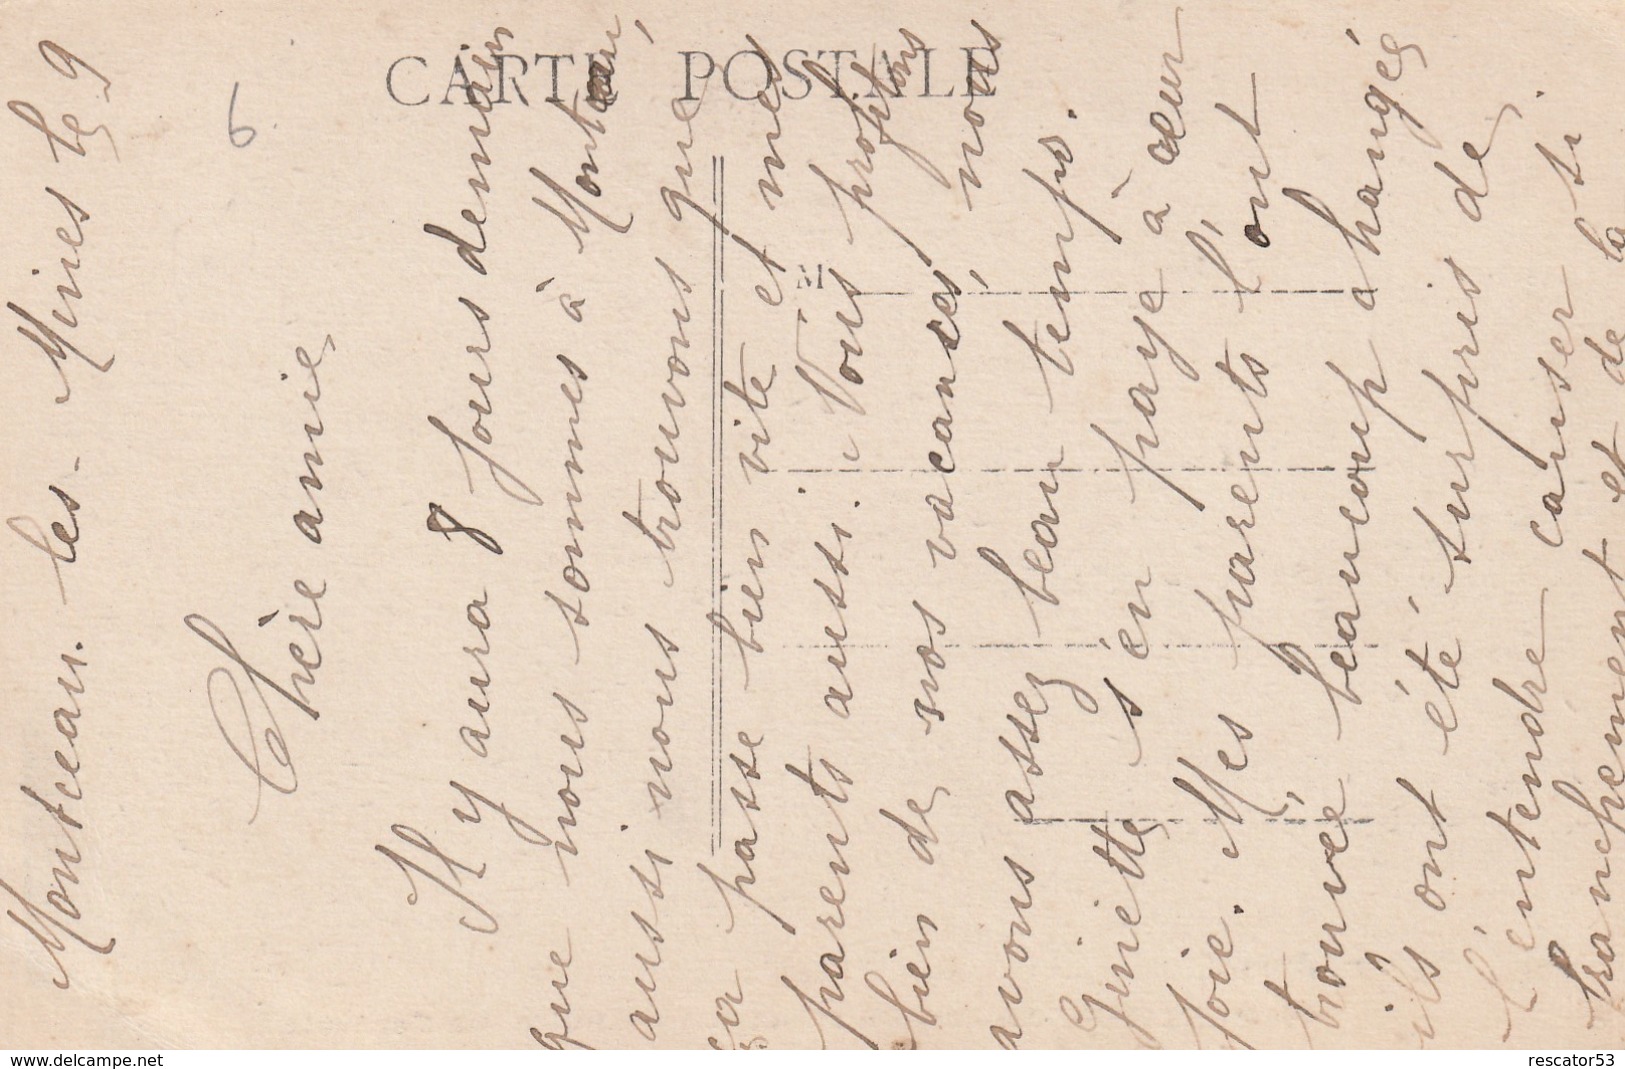 CARTE POSTALE
M
6
Montceau. les. Mines le 9
Chère amie
Il y aura 8 jours demain
que nous sommes à Montceau,
aussi nous trouvons que
ça passe bien vite et mes
parents aussi. Nous profitons
bien de nos vacances, nous
avons assez beau temps.
Ginette s'en paye à cœur
joie. Mes parents l'ont
trouvée beaucoup changée
ils ont été surpris de
l'entendre causer si
franchement et de la
www.delcampe.net
rescator53